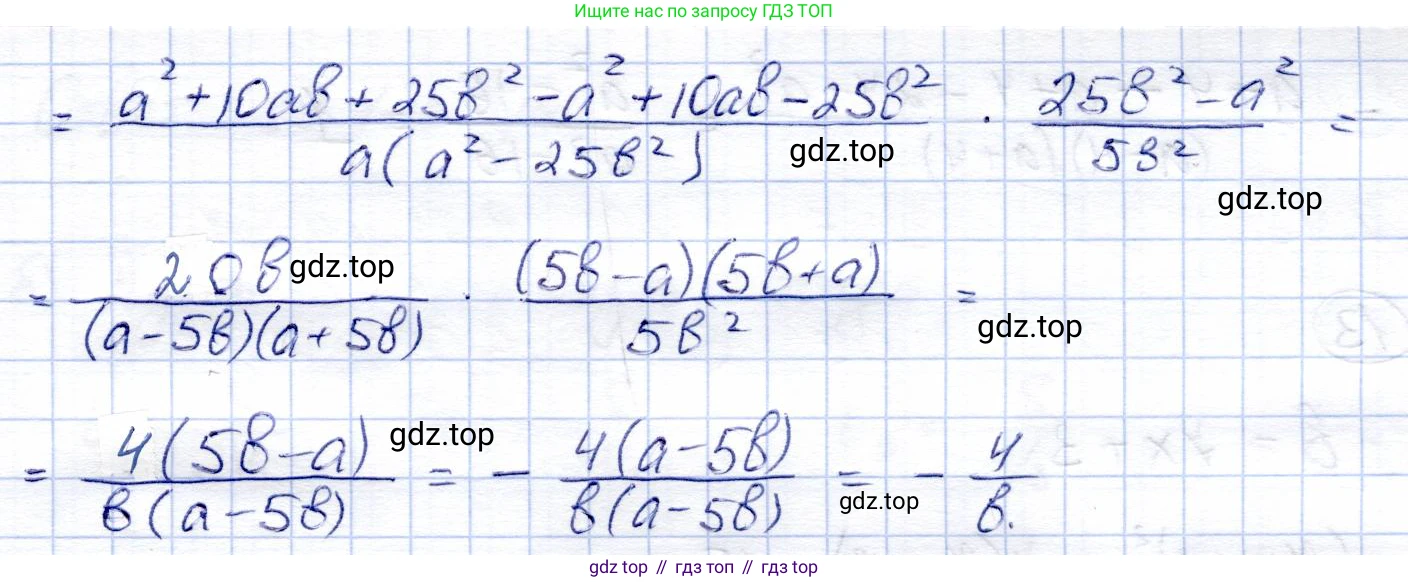 Ищите нас по запросу ГДЗ ТОП
= (a² + 10ab + 25b² - a² + 10ab - 25b²) / (a(a² - 25b²)) · (25b² - a²) / (5b²) =
gdz.top
gdz.top
= 20b / ((a - 5b)(a + 5b)) · ((5b - a)(5b + a)) / (5b²) =
gdz.top
gdz.top
= (4(5b - a)) / (b(a - 5b)) = - (4(a - 5b)) / (b(a - 5b)) = - 4 / b.
gdz.top
gdz.top
gdz top // гдз топ // gdz top